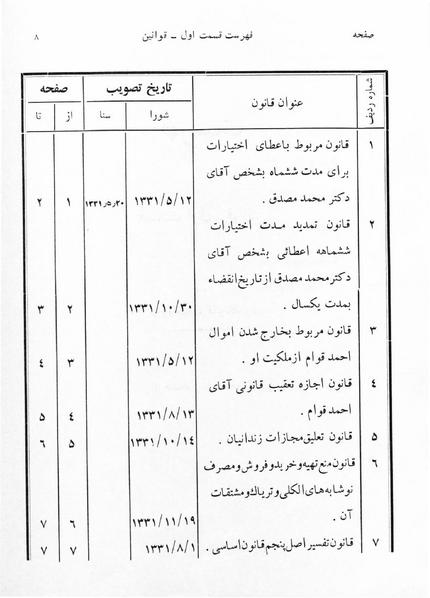 صفحه فهرست قسمت اول ـ قوانین ۸
شماره ردیف عنوان قانون تاریخ تصویب صفحه
شورا سنا از تا
۱ قانون مربوط باعطای اختیارات
برای مدت ششماه بشخص آقای
دکتر محمد مصدق . ۱۳۳۱/۵/۱۲ ۱۳۳۱٫۵٫۲۰ ۱ ۲
۲ قانون تمدید مدت اختیارات
ششماهه اعطائی بشخص آقای
دکتر محمد مصدق از تاریخ انقضاء
بمدت یکسال . ۱۳۳۱/۱۰/۳۰ ۲ ۳
۳ قانون مربوط بخارج شدن اموال
احمد قوام از ملکیت او . ۱۳۳۱/۵/۱۲ ۳ ٤
٤ قانون اجازه تعقیب قانونی آقای
احمد قوام . ۱۳۳۱/۸/۱۳ ٤ ۵
۵ قانون تعلیق مجازات زندانیان . ۱۳۳۱/۱۰/۱٤ ۵ ٦
٦ قانون منع تهیه و خرید و فروش و مصرف
نوشابه‌های الکلی و تریاک و مشتقات
آن . ۱۳۳۱/۱۱/۱۹ ٦ ۷
۷ قانون تفسیر اصل پنجم قانون اساسی . ۱۳۳۱/۸/۱ ۷ ۷